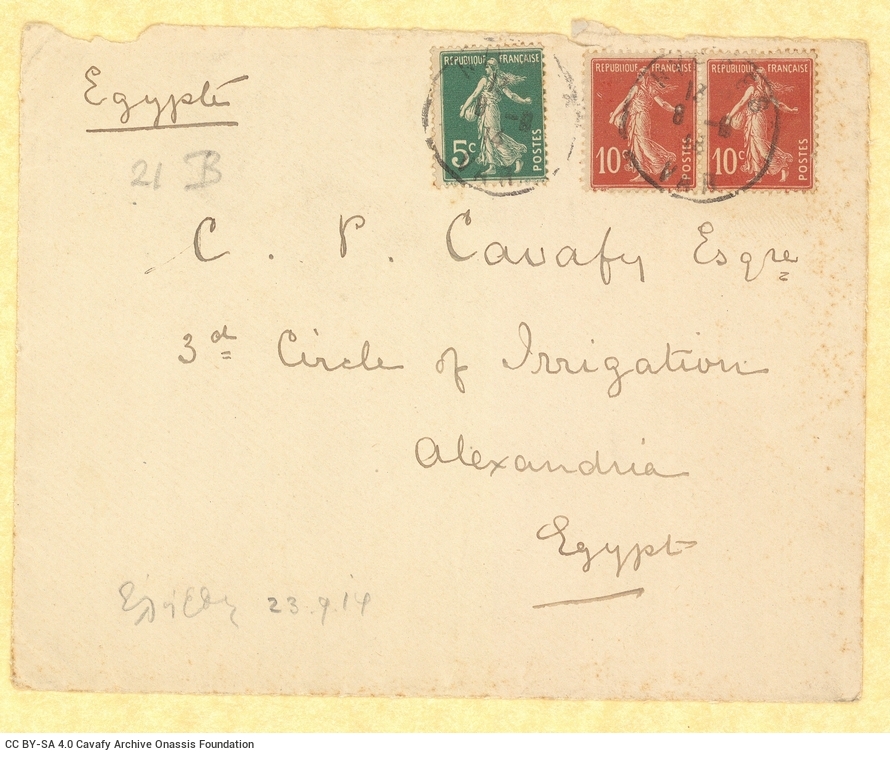 Egypte
REPUBLIQUE FRANÇAISE
5c
POSTES
REPUBLIQUE FRANÇAISE
10c
POSTES
REPUBLIQUE FRANÇAISE
10c
POSTES
21 B
C. P. Cavafy Esqre
3rd Circle of Irrigation
Alexandria
Egypt
Ελήφθη 23.9.14
CC BY-SA 4.0 Cavafy Archive Onassis Foundation